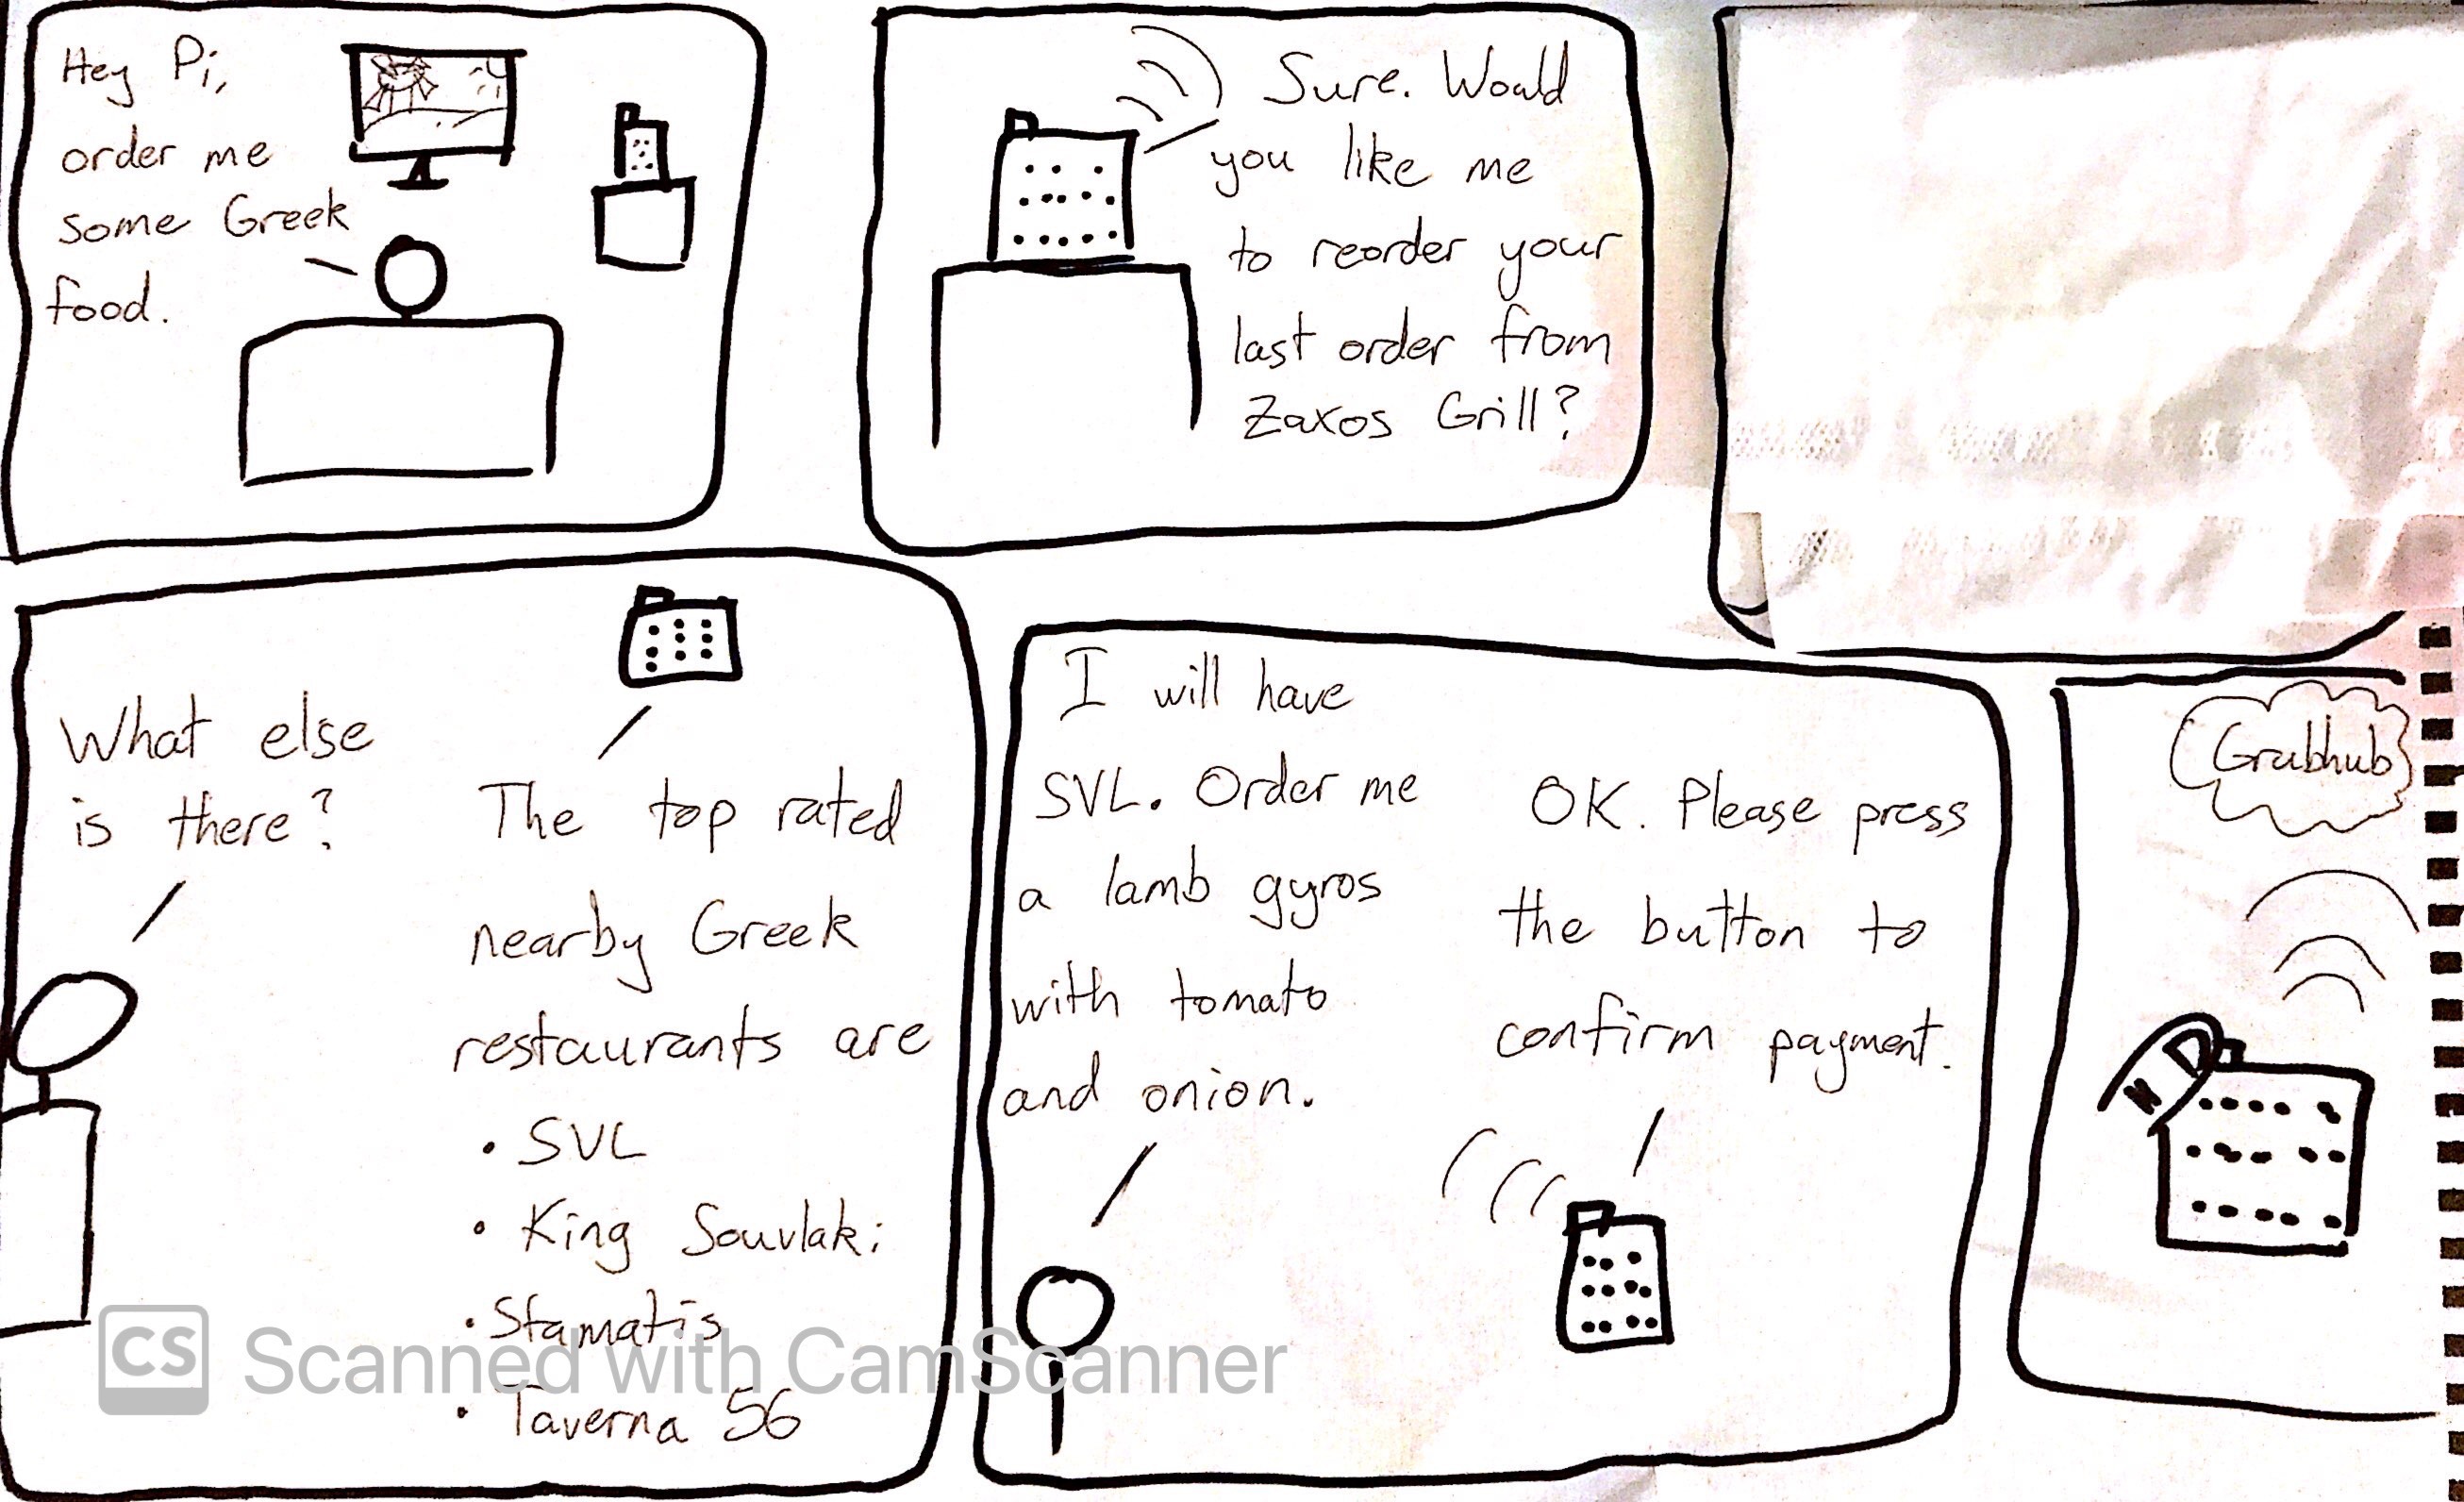 Hey Pi,
order me
some Greek
food.
Sure. Would
you like me
to reorder your
last order from
Zaxos Grill?
What else
is there?
The top rated
nearby Greek
restaurants are
• SVL
• King Souvlaki
• Stamatis
• Taverna 56
I will have
SVL. Order me
a lamb gyros
with tomato
and onion.
OK. Please press
the button to
confirm payment.
Grubhub
CS Scanned with CamScanner